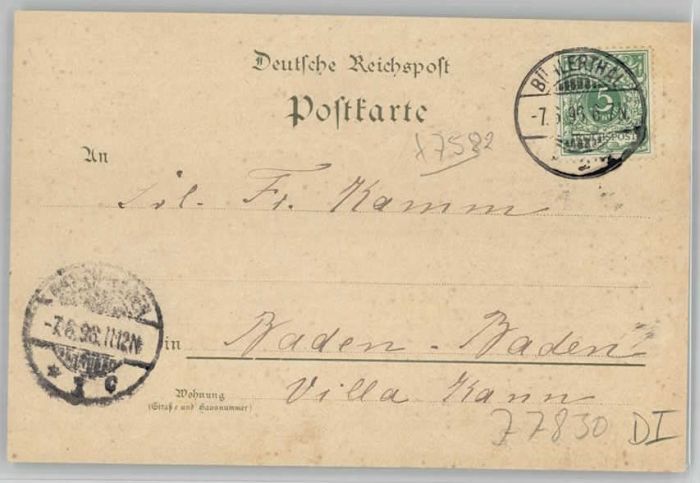 Deutsche Reichspost
Postkarte
BÜHLERTHAL
-7.6.96.6-7N.
5
REICHSPOST
x7582
An
Frl. Fr. Kamm
-7.6.96.11-12N
* 1 C
in
Baden-Baden
Wohnung
(Straße und Hausnummer)
Villa Kann
77830 DI